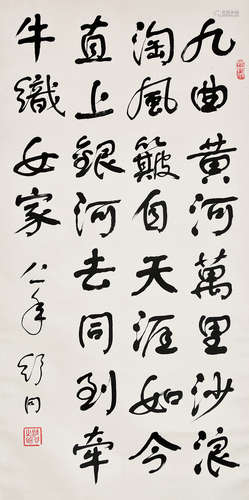 九曲黄河萬里沙浪
淘風簸自天涯如今
直上銀河去同到牽
牛織女家 年 舒同